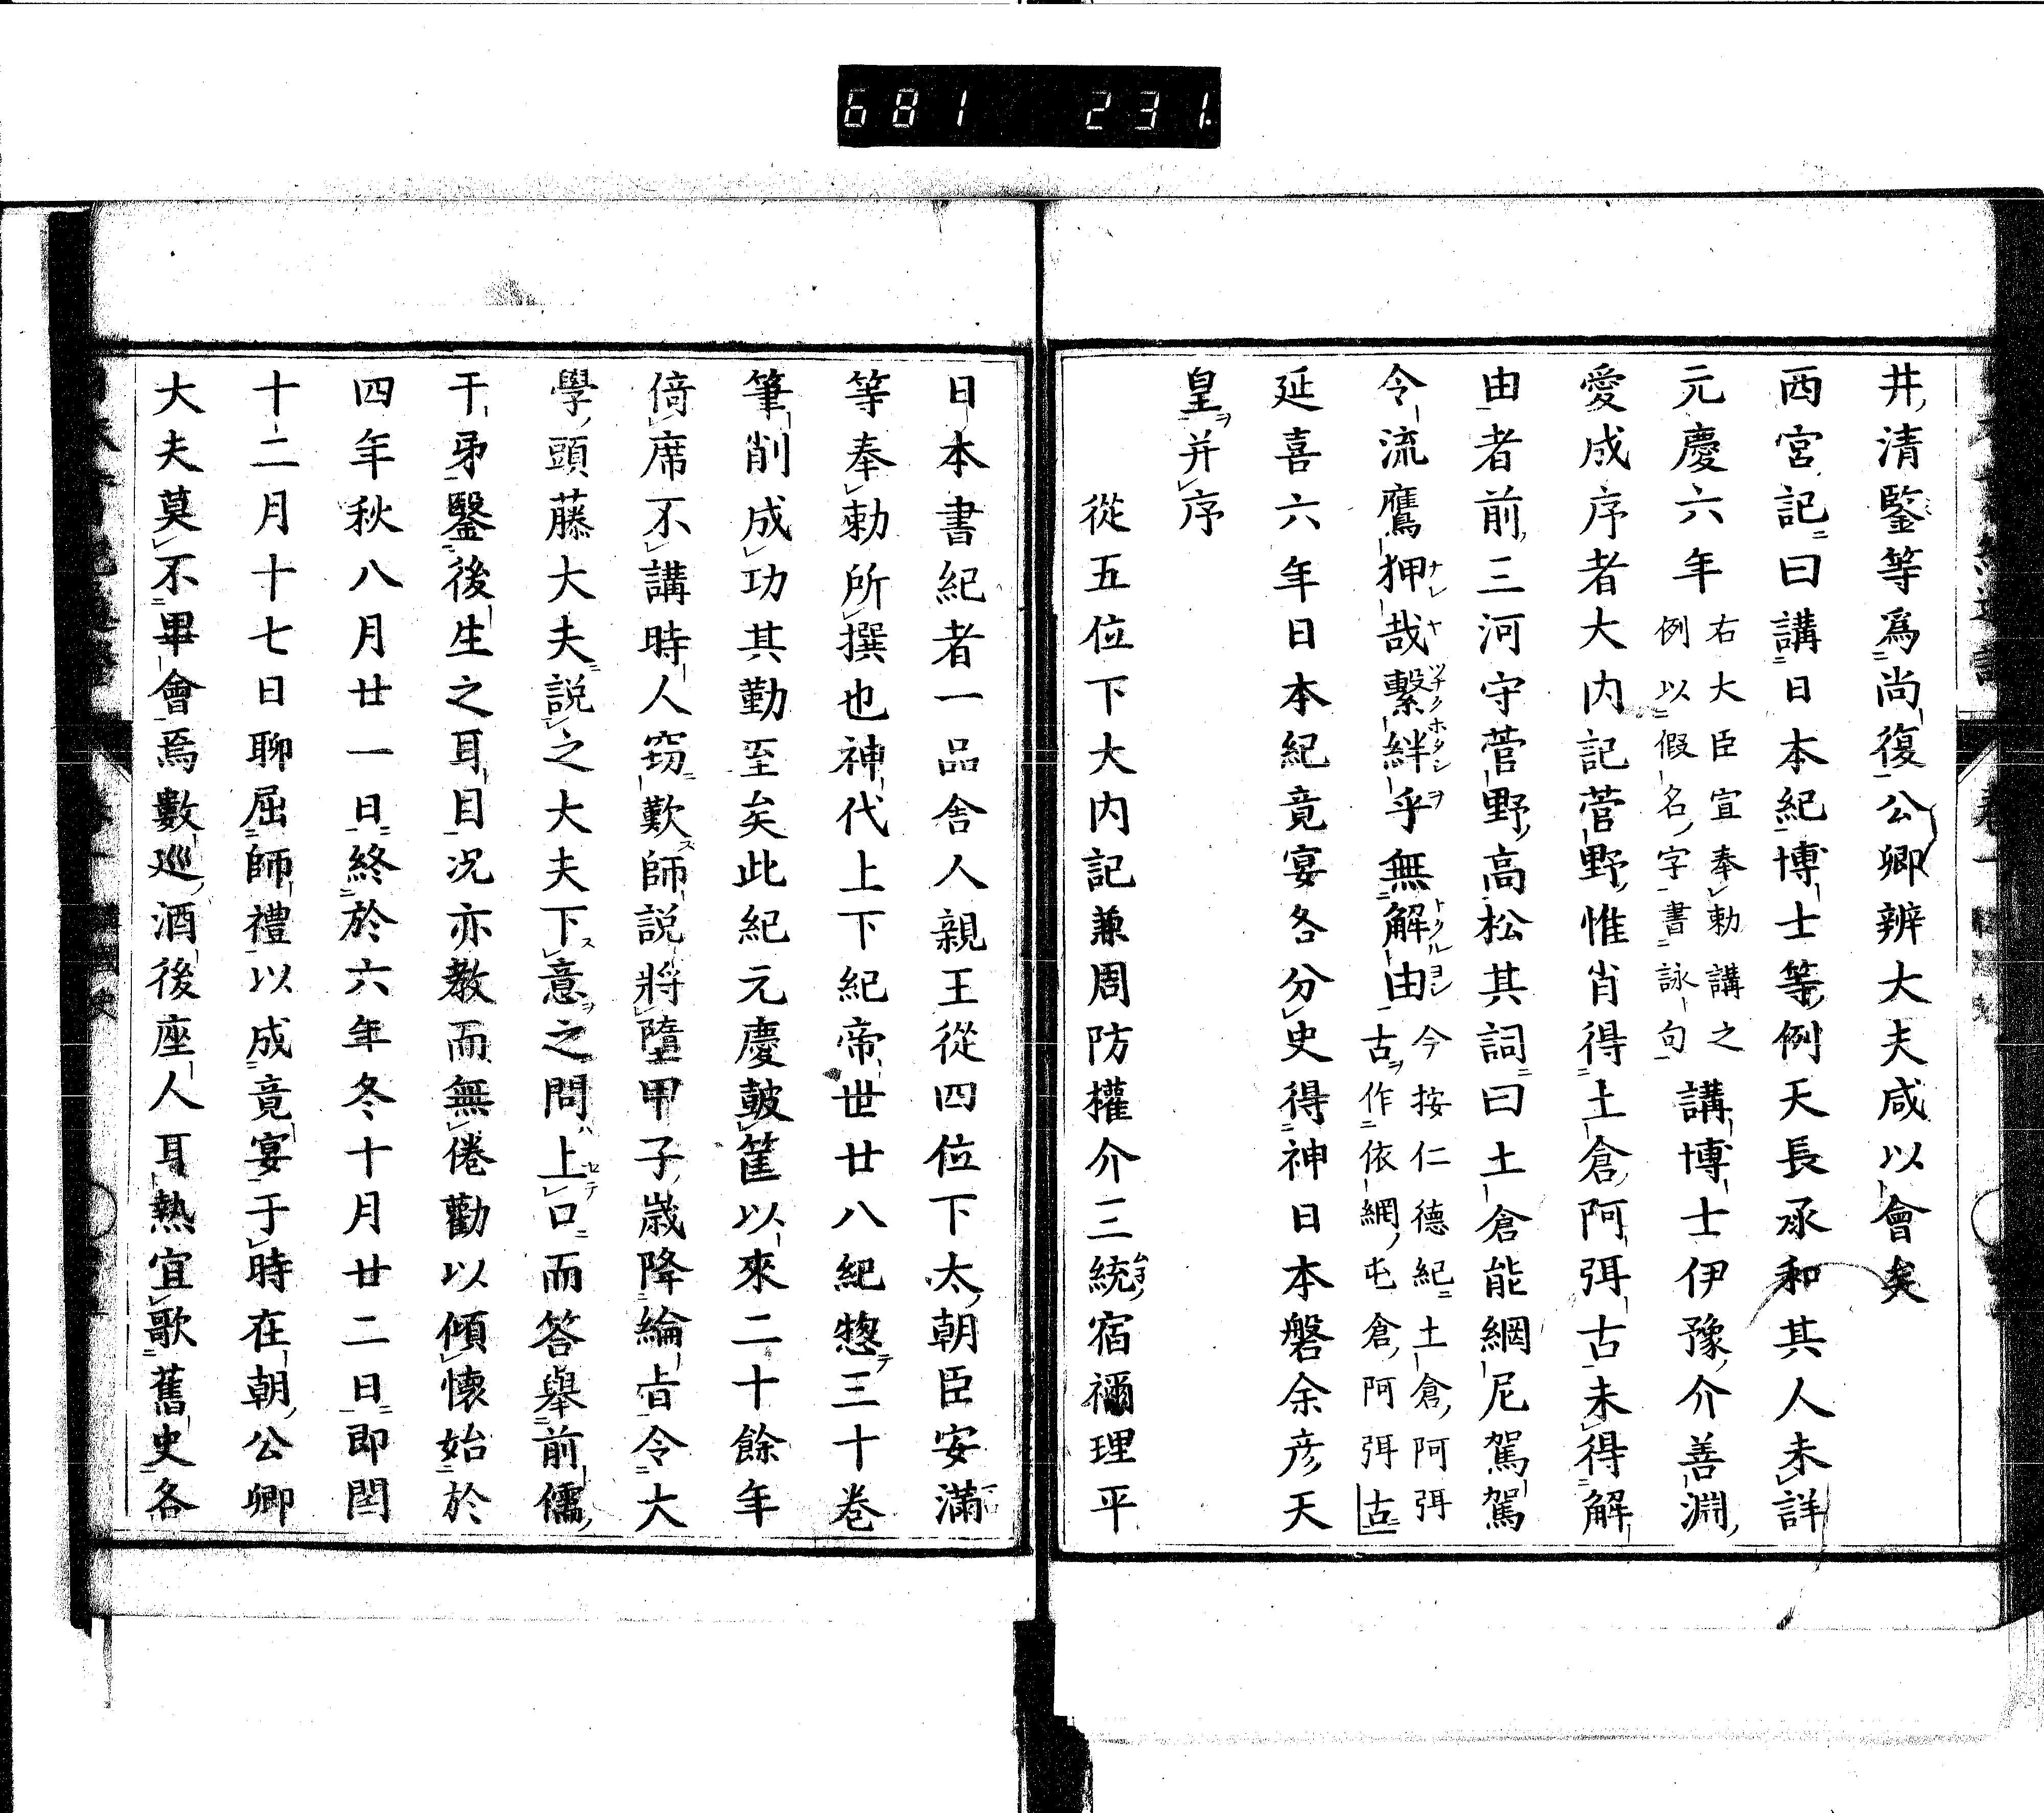 681 231
井清鑒等爲尚復公卿辨大夫咸以會矣
西宮記曰講日本紀博士等例天長承和其人未詳
元慶六年右大臣宣奉勅講之例以假名字書詠句講博士伊豫介善淵
愛成序者大内記菅野惟肖得土倉阿弭古未得解
由者前三河守菅野高松其詞曰土倉能網尼駕駕
令流鷹狎哉繫絆乎無解由今按仁德紀土倉阿弭古作依網屯倉阿弭古
延喜六年日本紀竟宴各分史得神日本磐余彦天
皇并序
從五位下大内記兼周防權介三統宿禰理平
日本書紀者一品舎人親王從四位下太朝臣安満
等奉勅所撰也神代上下紀帝世廿八紀惣三十巻
筆削成功其勤至矣此紀元慶皷篋以來二十餘年
倚席不講時人窃歎師説將墮甲子歳降綸旨令大
學頭藤大夫説之大夫下意之問上口而答舉前儒
干矛鑿後生之耳目况亦教而無倦勸以傾懐始於
四年秋八月廿一日終於六年冬十月廿二日即閏
十二月十七日聊屈師禮以成竟宴于時在朝公卿
大夫莫不畢會焉數巡酒後座人耳熱宜歌舊史各